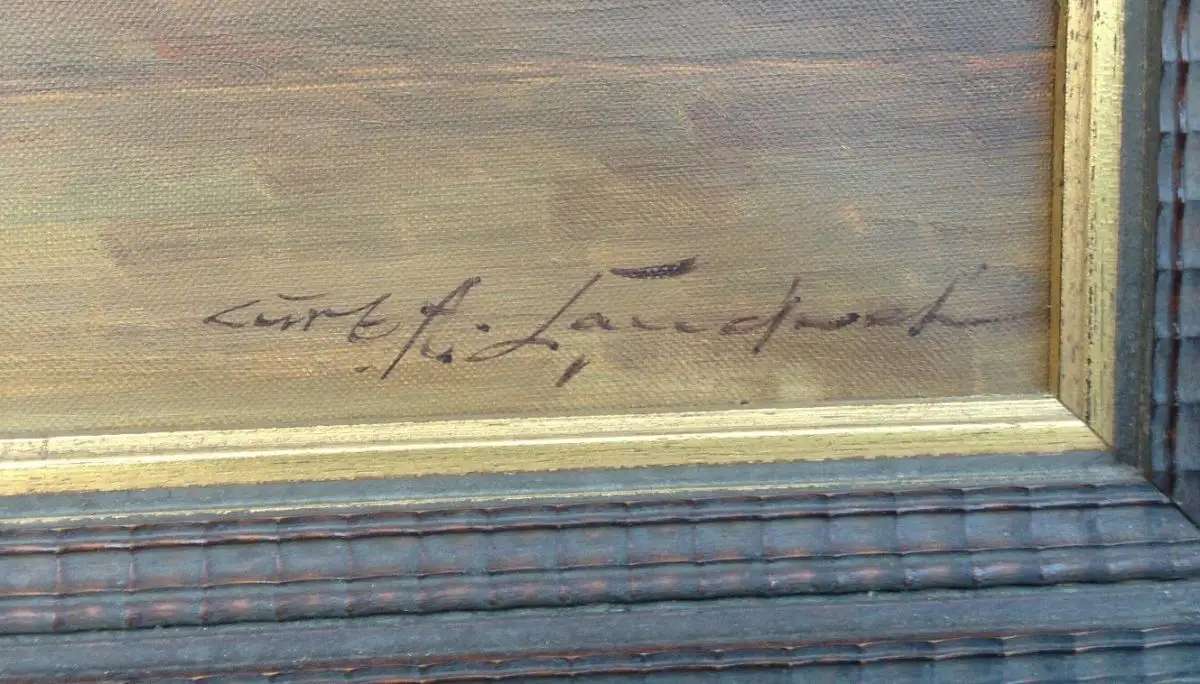 Curt A. Landwehr